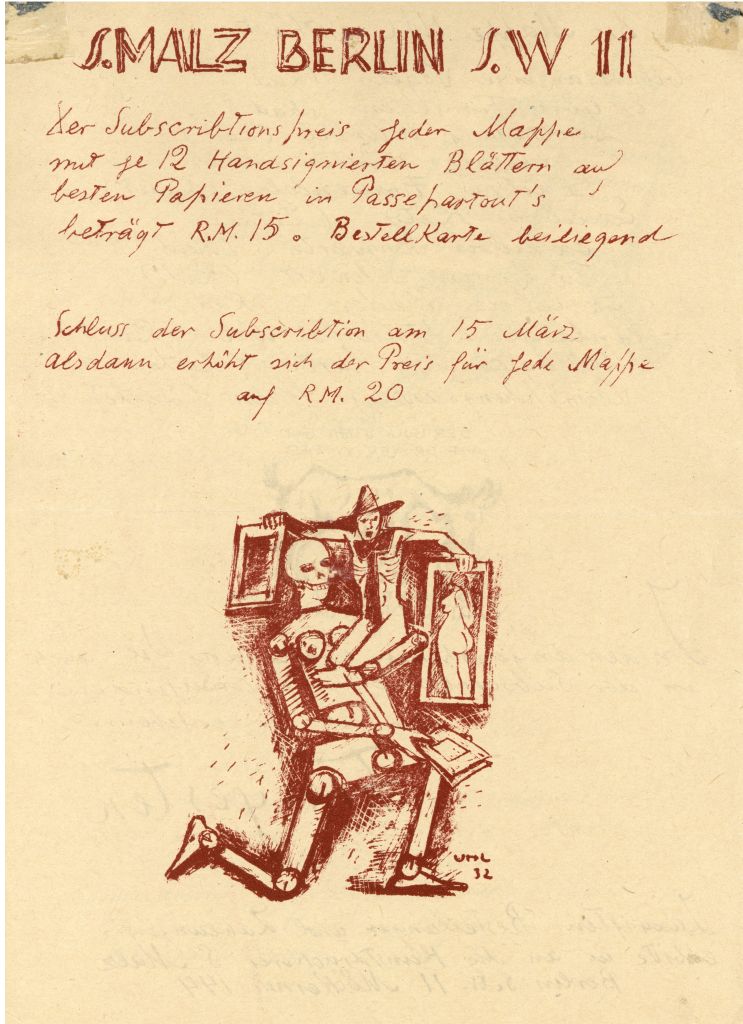 S.MALZ BERLIN S.W 11
Der Subscribtionspreis jeder Mappe
mit je 12 Handsignierten Blättern auf
besten Papieren in Passepartout's
beträgt R.M. 15. Bestellkarte beiliegend
Schluss der Subscribtion am 15 März
alsdann erhöht sich der Preis für jede Mappe
auf RM. 20
UHL
32